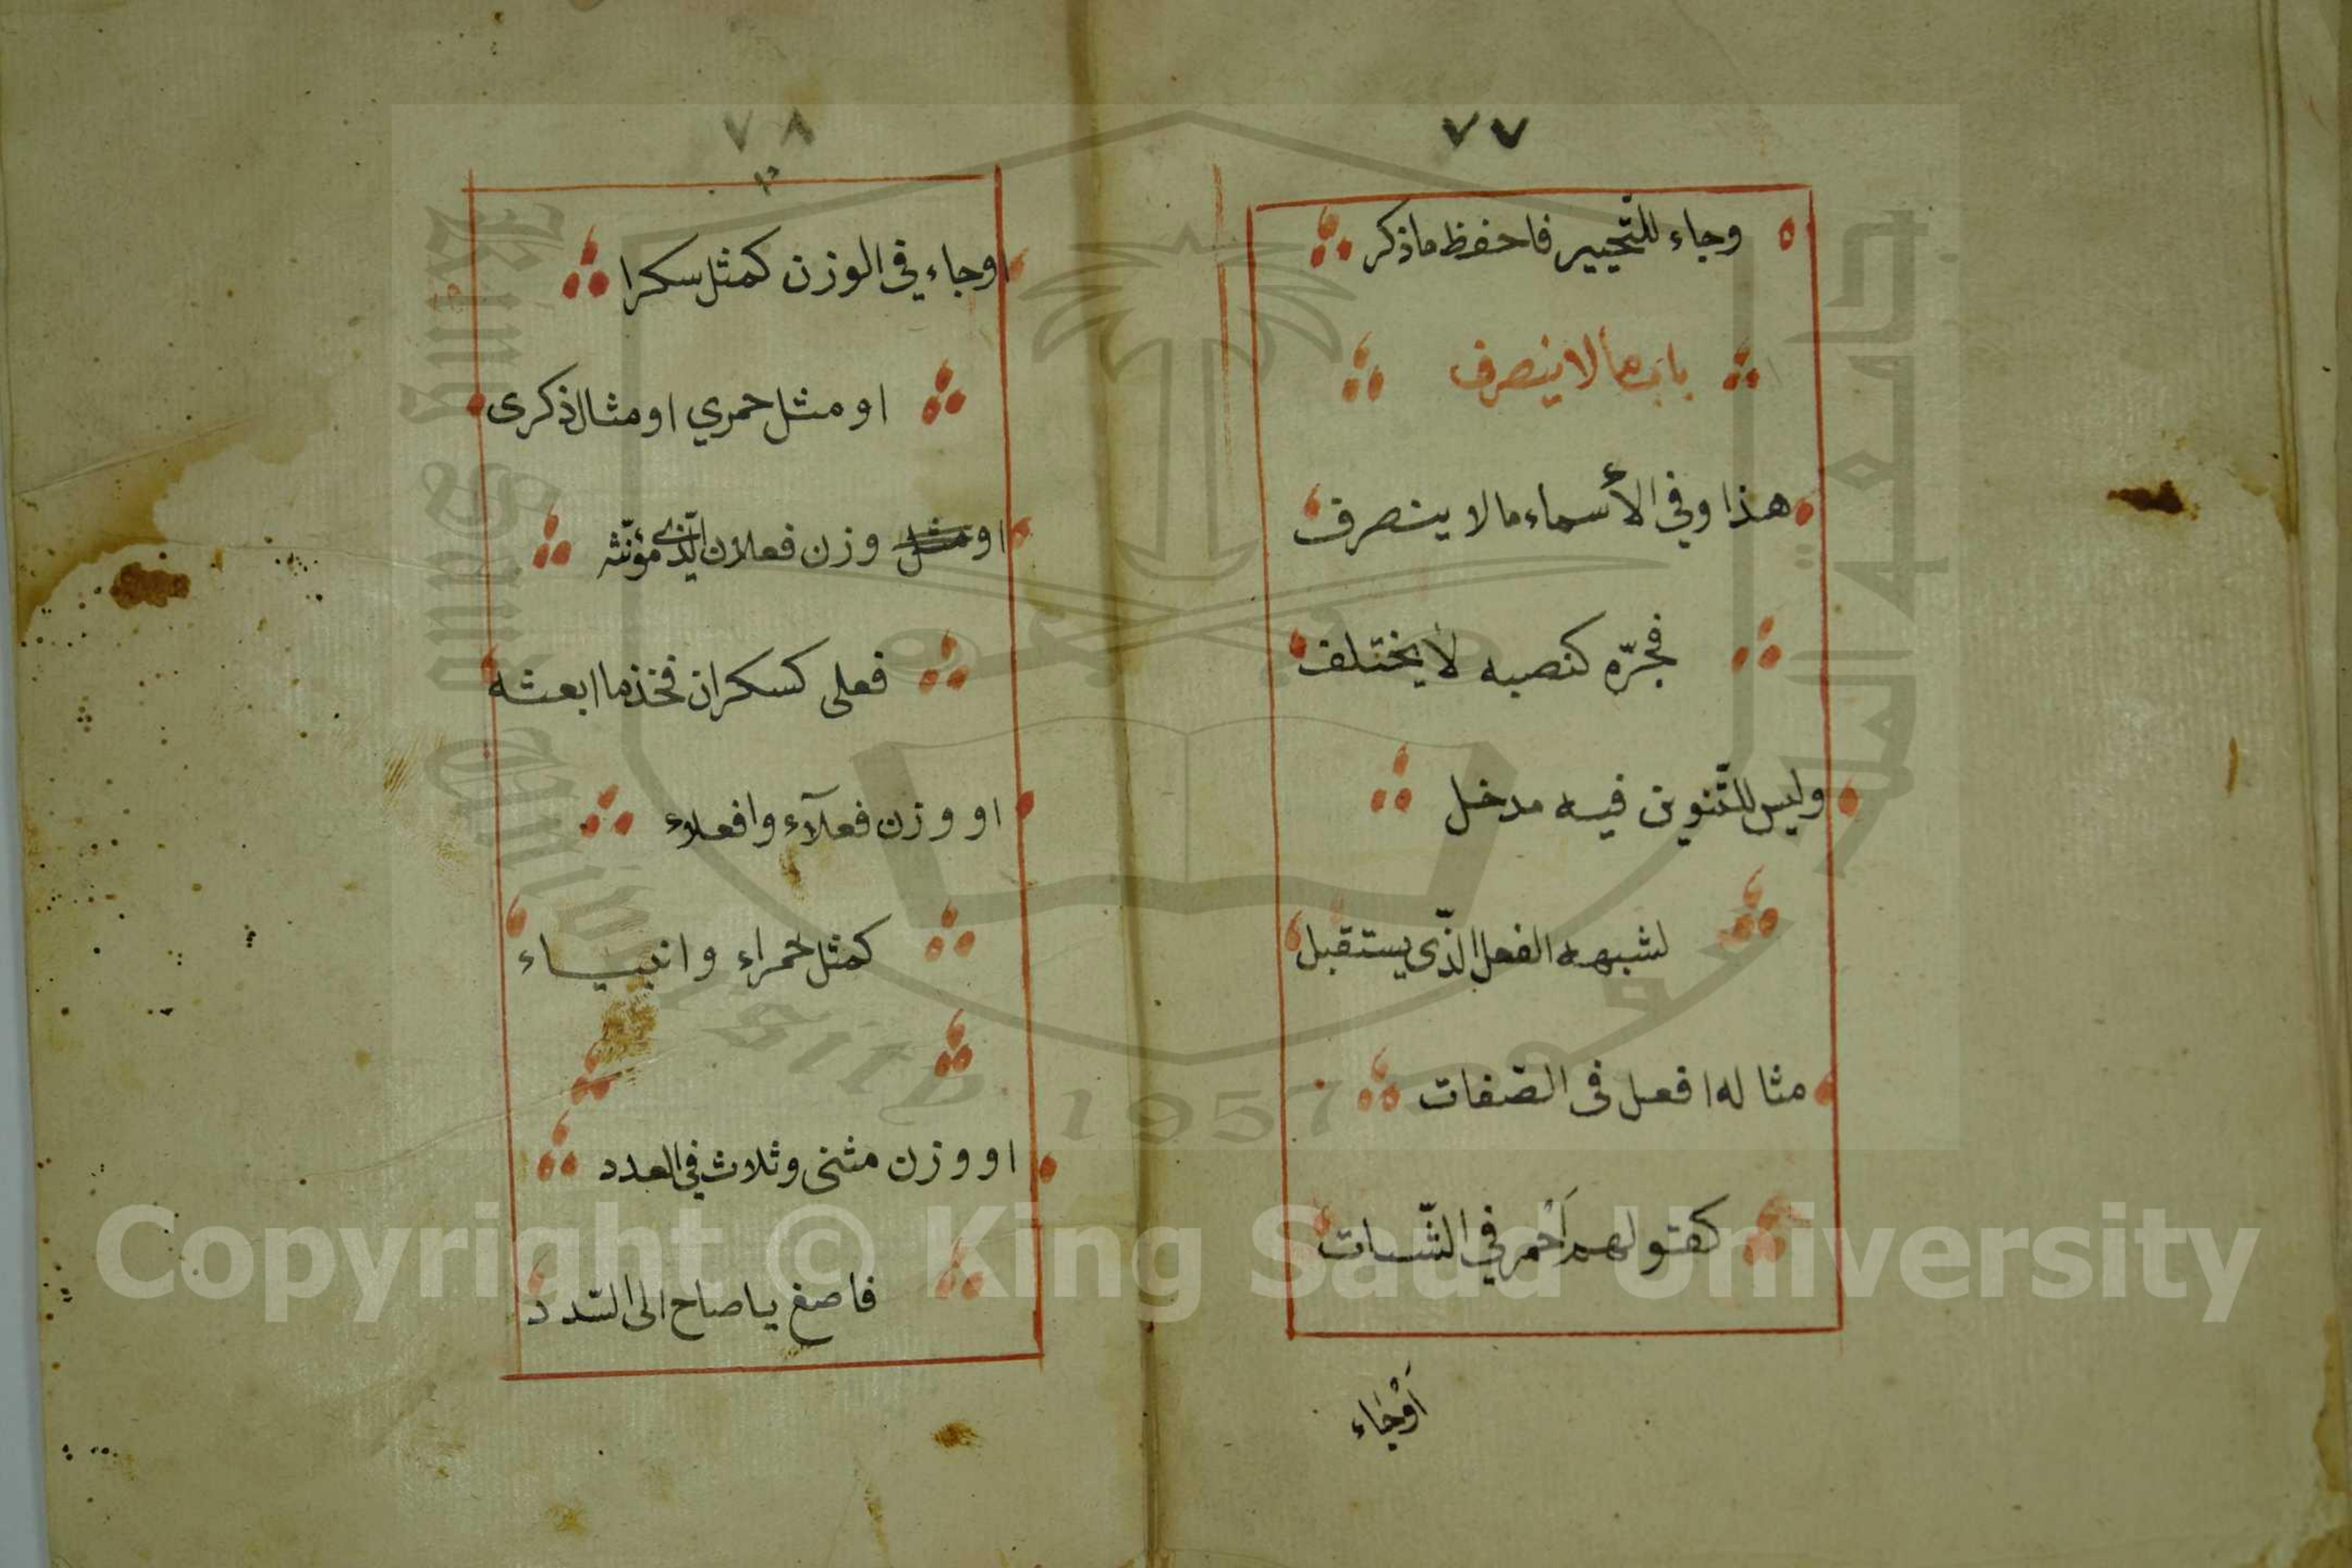 ٧٧
وجاء للتّخيير فاحفظ ماذكر
باب مالاينصرف
هذا وفي الأسماء مالا ينصرف
فجرّه كنصبه لا يختلف
وليس للتّنوين فيه مدخل
لشبهه الفعل الذّى يستقبل
مثاله افعل فى الصّفات
كقولهم اَحْمر في الشّيات
اَوْجَاء
٧٨
اوجاء في الوزن كمثل سكرا
او مثل حمري او مثال ذكرى
او مثل وزن فعلان الّذى مؤنّثه
فعلى كسكران فخذ ما ابعثه
او وزن فعلآء وافعلاء
كمثل حمراء وانبياء
او وزن مثنى وثلاث في العدد
فاصغ ياصاح الى السّدد
Copyright © King Saud University
King Saud University
1957